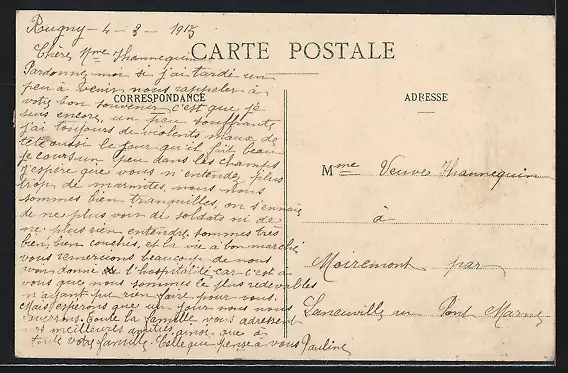 Rugny - 4 - 3 - 1915
Chère Mme Hannequin
CARTE POSTALE
Pardonnez moi si j'ai tardi un
peu à venir nous rappeler à
votre bon souvenir c'est que je
CORRESPONDANCE
suis encore un peu souffrante
j'ai toujours de violents maux de
tête aussi le jour qu'il fait beau
je cours un peu dans les champs
J'espère que vous n'entendez plus
trop de marmites, nous nous
sommes bien tranquilles, on s'ennuie
de ne plus voir de soldats ni de
ne plus rien entendre, sommes très
bien, bien couchés, et la vie à bon marché
vous remercions beaucoup de nous
avoir donné l'hospitalité car c'est à
vous que nous sommes le plus redevables
n'ayant pu rien faire pour vous.
Mais espérons que un jour nous nous
reverrons. Toute la famille vous adressent
meilleures amitiés ainsi que à
toute votre famille. Celle qui pense à vous Pauline
ADRESSE
Mme Veuve Hannequin
à
Moiremont par
Laneuville au Pont Marne